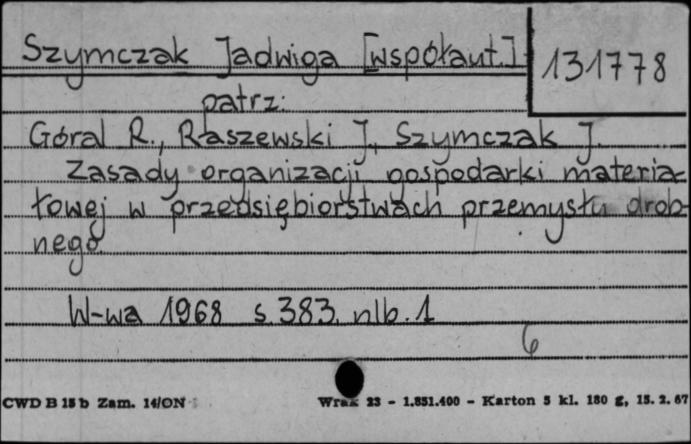 Szymczak Jadwiga [współaut.]
131778
patrz:
Góral R., Raszewski J., Szymczak J.
Zasady organizacji gospodarki materia-
łowej w przedsiębiorstwach przemysłu drob-
nego.
W-wa 1968 s. 383, nlb. 1
6
CWD B 15 b Zam. 14/ON Wrak 23 - 1.851.400 - Karton 5 kl. 180 g, 15. 2. 67